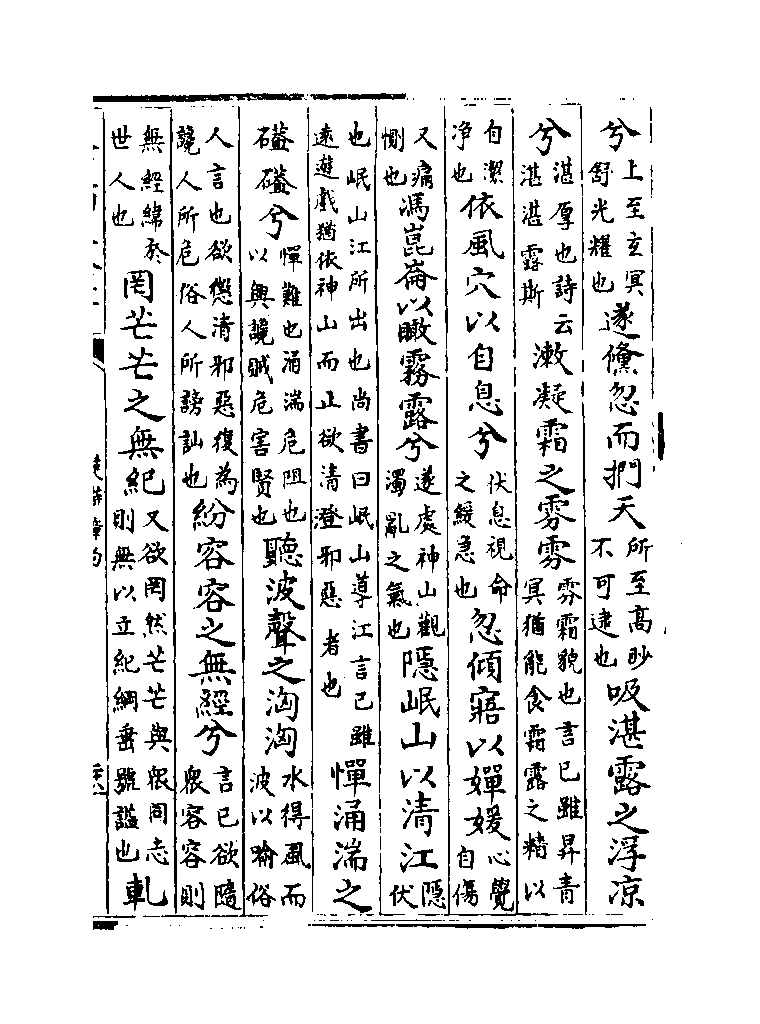 兮上至玄冥舒光耀也遂儵忽而捫天所至高眇不可逮也吸湛露之浮凉
兮湛厚也詩云湛湛露斯漱凝霜之雰雰雰霜貌也言己雖昇青冥猶能食霜露之精以
自潔净也依風穴以自息兮伏息視命之緩急也忽傾寤以嬋媛心覺自傷
又痛惻也馮崑崙以瞰霧露兮遂處神山觀濁亂之氣也隱岷山以清江隱伏
也岷山江所出也尚書曰岷山導江言己雖遠遊戲猶依神山而止欲清澄邪惡者也憚涌湍之
礚礚兮憚難也涌湍危阻也以興讒賊危害賢也聽波聲之洶洶水得風而波以喻俗
人言也欲憊清邪惡復為讒人所危俗人所謗訕也紛容容之無經兮言己欲隨衆容容則
無經緯於世人也罔芒芒之無紀又欲罔然芒芒與衆同志則無以立紀綱垂號謚也軋